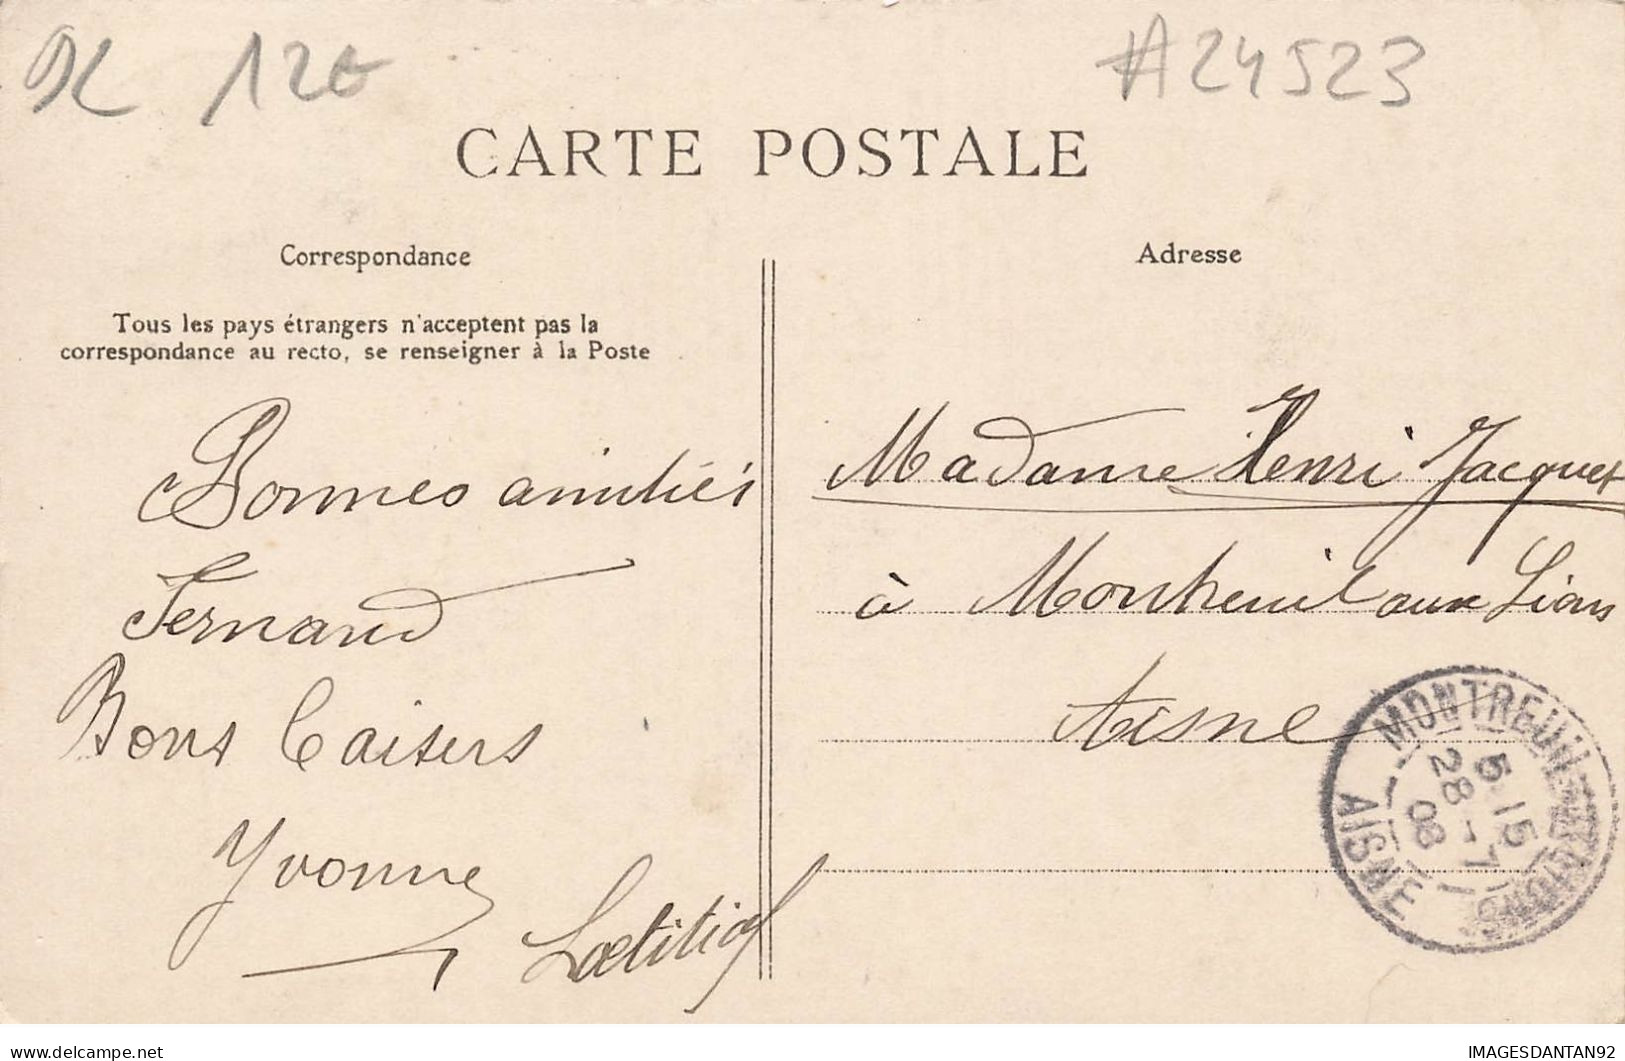 12€
#24523
CARTE POSTALE
Correspondance
Tous les pays étrangers n'acceptent pas la
correspondance au recto, se renseigner à la Poste
Bonnes amitiés
Fernand
Bons baisers
Yvonne
Laetitia
Adresse
Madame Henri Jacquet
à Montreuil aux Lions
Aisne
MONTREUIL-AUX-LIONS
5·15
28-7
08
AISNE
delcampe.net
IMAGESDANTAN92